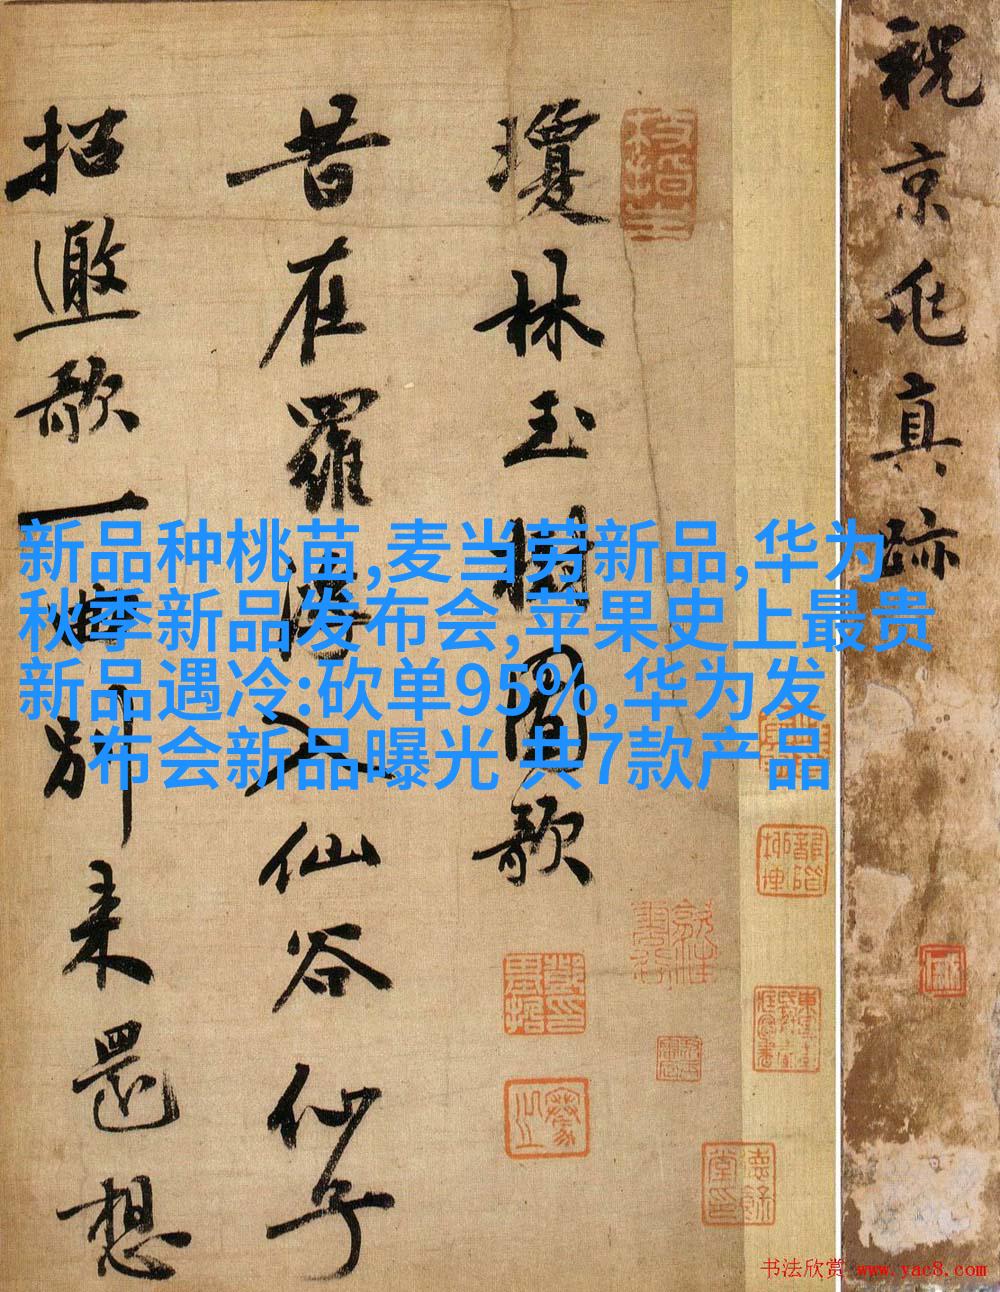 祝京兆真跡
瓊林玉樹圖歌
昔在羅浮入仙谷仙子
招邀歌一曲別来還想
新品种桃苗,麦当劳新品,华为
秋季新品发布会,苹果史上最贵
新品遇冷:砍单95%,华为发
布会新品曝光 共7款产品
书法欣赏 www.yac8.com